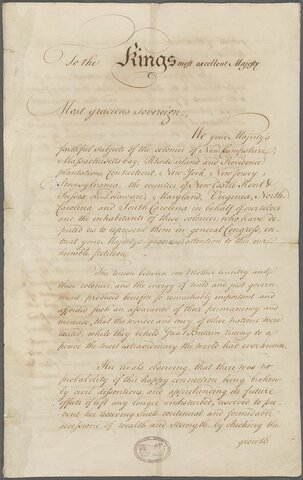 To the Kings most excellent Majesty
Most gracious Sovereign,
We your Majesty's
faithful subjects of the colonies of Newhampshire,
Massachusetts bay, Rhode island and Providence
plantations, Connecticut, New York, New Jersey,
Pennsylvania, the counties of New Castle Kent &
Sussex on Delaware, Maryland, Virginia, North
Carolina and South Carolina in behalf of ourselves
and the inhabitants of these colonies, who have de=
puted us to represent them in general Congress, en=
treat your Majesty's gracious attention to this our
humble petition.
The union between our Mother Country and
these colonies, and the energy of mild and just govern=
ment, produced benefits so remarkably important and
afforded such an assurance of their permanency and
increase, that the wonder and envy of other Nations were
excited, while they beheld Great Britain riseing to a
power the most extraordinary the world had ever known.
Her rivals observing, that there was no
probability of this happy connection being broken
by civil dissentions, and apprehending its future
effects, if left any longer undisturbed, resolved to pre=
vent her receiving such continual and formidable
accessions of wealth and strength, by checking the
growth